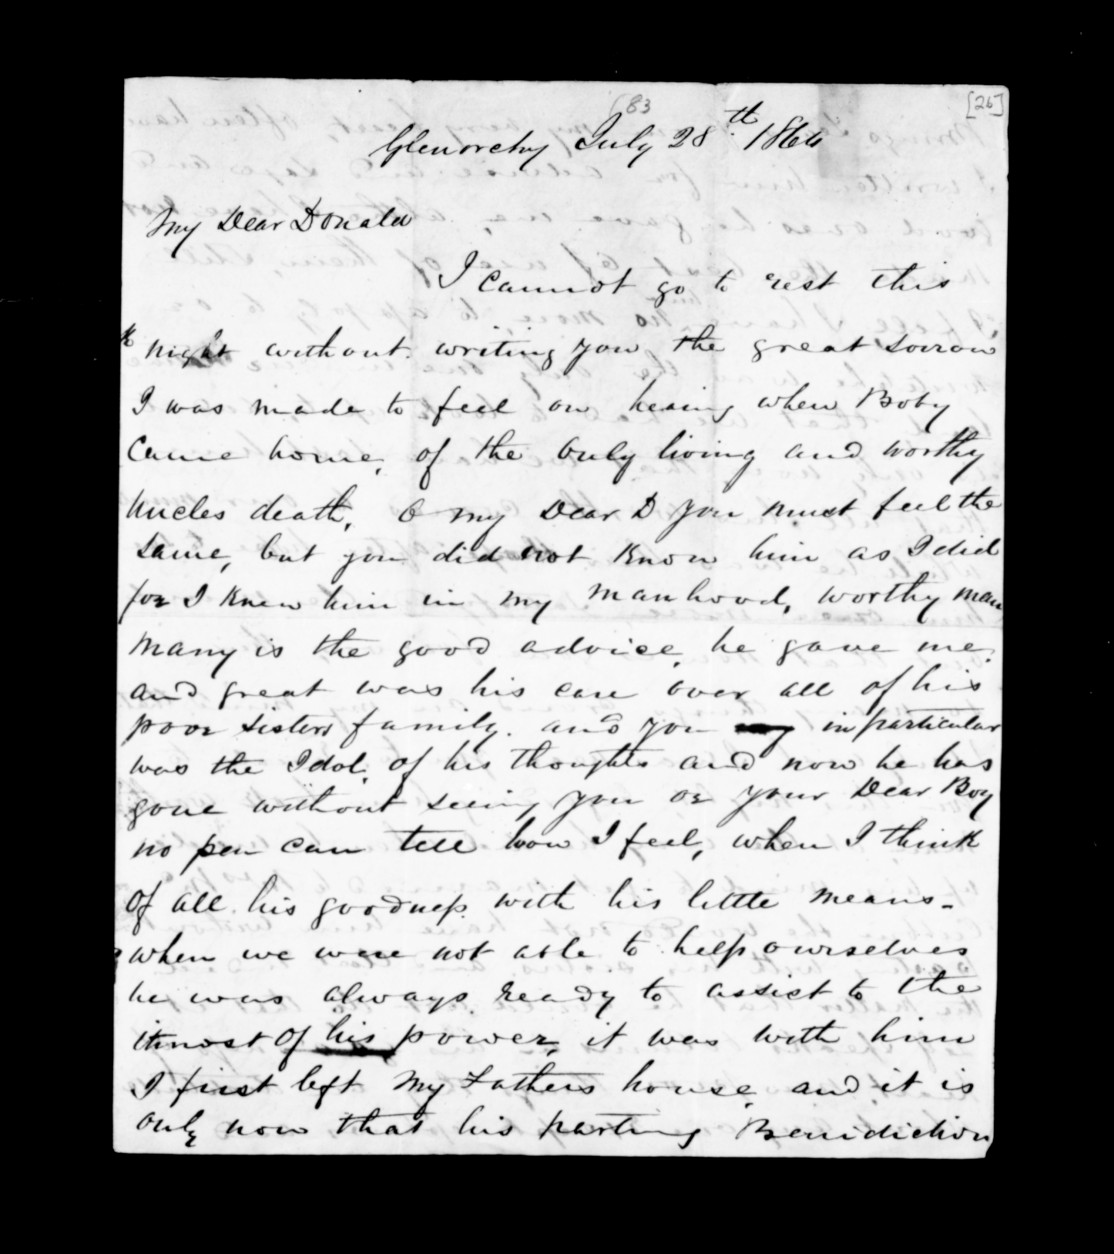 83
[26]
Glenorchy July 28th 1864
My Dear Donald
I cannot go to rest this
night without writing you the great sorrow
I was made to feel on hearing when Boby
Came home, of the only living and worthy
Uncles death, O my Dear D you must feel the
same, but you did not know him as I did
for I knew him in my manhood, worthy man
many is the good advice, he gave me
and great was his care over all of his
poor sisters family. and you in particular
was the Idol, of his thoughts and now he has
gone without seeing you or your Dear Boy
no pen can tell how I feel, when I think
Of all his goodness with his little means-
when we were not able to help ourselves
he was always ready to assist to the
utmost of his power, it was with him
I first left my Fathers house, and it is
only now that his parting Benidiction